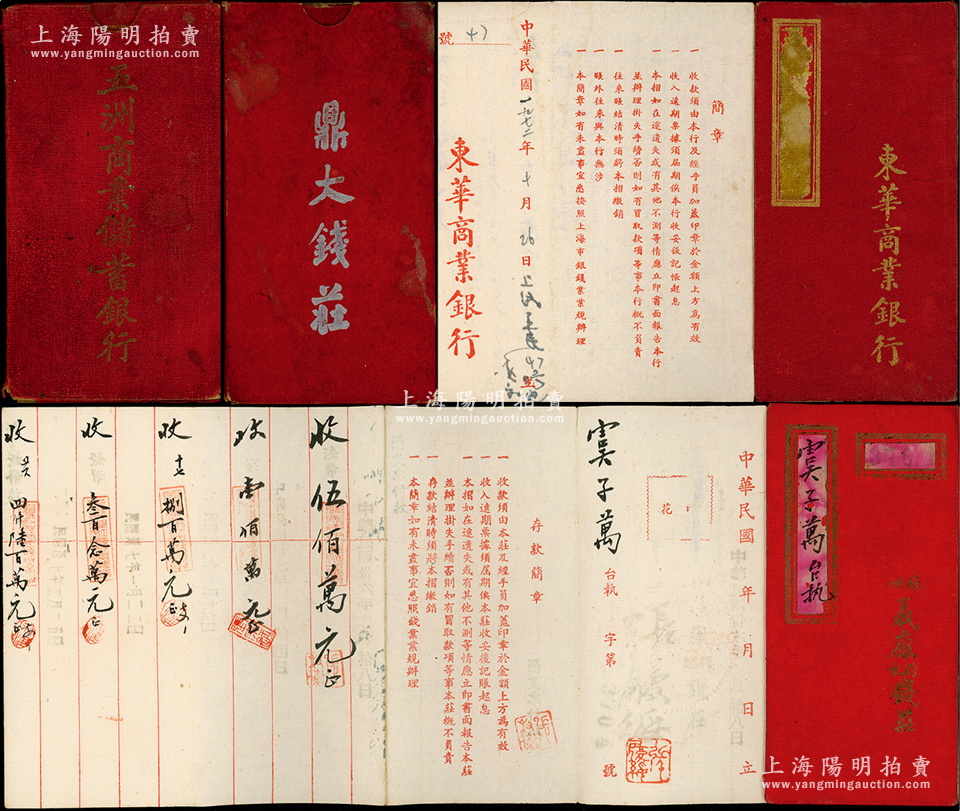 上海陽明拍賣
www.yangmingauction.com
五洲商業儲蓄銀行
鼎大錢莊
上海陽明拍賣
www.yangmingauction.com
東華商業銀行
簡章
一 收款須由本行及經手員加蓋印章於金額上方為有效
一 收入遠期票據須屆期俟本行收妥後記帳起息
一 本摺如在途遺失或有其他不測等情應立即書面報告本行
並辦理掛失手續否則如有冒取款項等事本行概不負責
一 往來賬結清時須將本摺繳銷
一 賬外往來與本行無涉
一 本簡章如有未盡事宜悉按照上海市銀錢業業規辦理
中華民國一九五二年十月26日
47
號
東華商業銀行
上海陽明拍賣
www.yangmingauction.com
虞子萬 台執
義康
錢莊
中華民國 年 月 日 立
花
虞子萬 台執 字第 號
存款簡章
一 收款須由本莊及經手員加蓋印章於金額上方為有效
一 收入遠期票據須屆期俟本莊收妥後記賬起息
一 本摺如在途遺失或有其他不測等情應立即書面報告本莊
並辦理掛失手續否則如有冒取款項等事本莊概不負責
一 存款結清時須將本摺繳銷
一 本簡章如有未盡事宜悉照錢業業規辦理
收 伍佰萬元正
收 壹佰萬元正
收 十七 捌百萬元正
收 叁百念萬元正
收 四仟陸百萬元正
上海陽明拍賣
www.yangmingauction.com